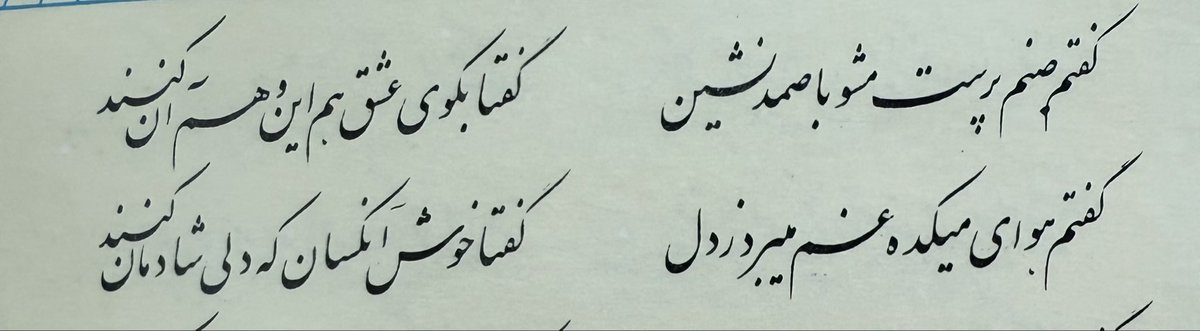 گفتم صنم پرست مشو با صمد نشین
گفتا بکوی عشق هم این و هم آن کنند
گفتم هوای میکده غم میبرد ز دل
گفتا خوش آنکسان که دلی شادمان کنند